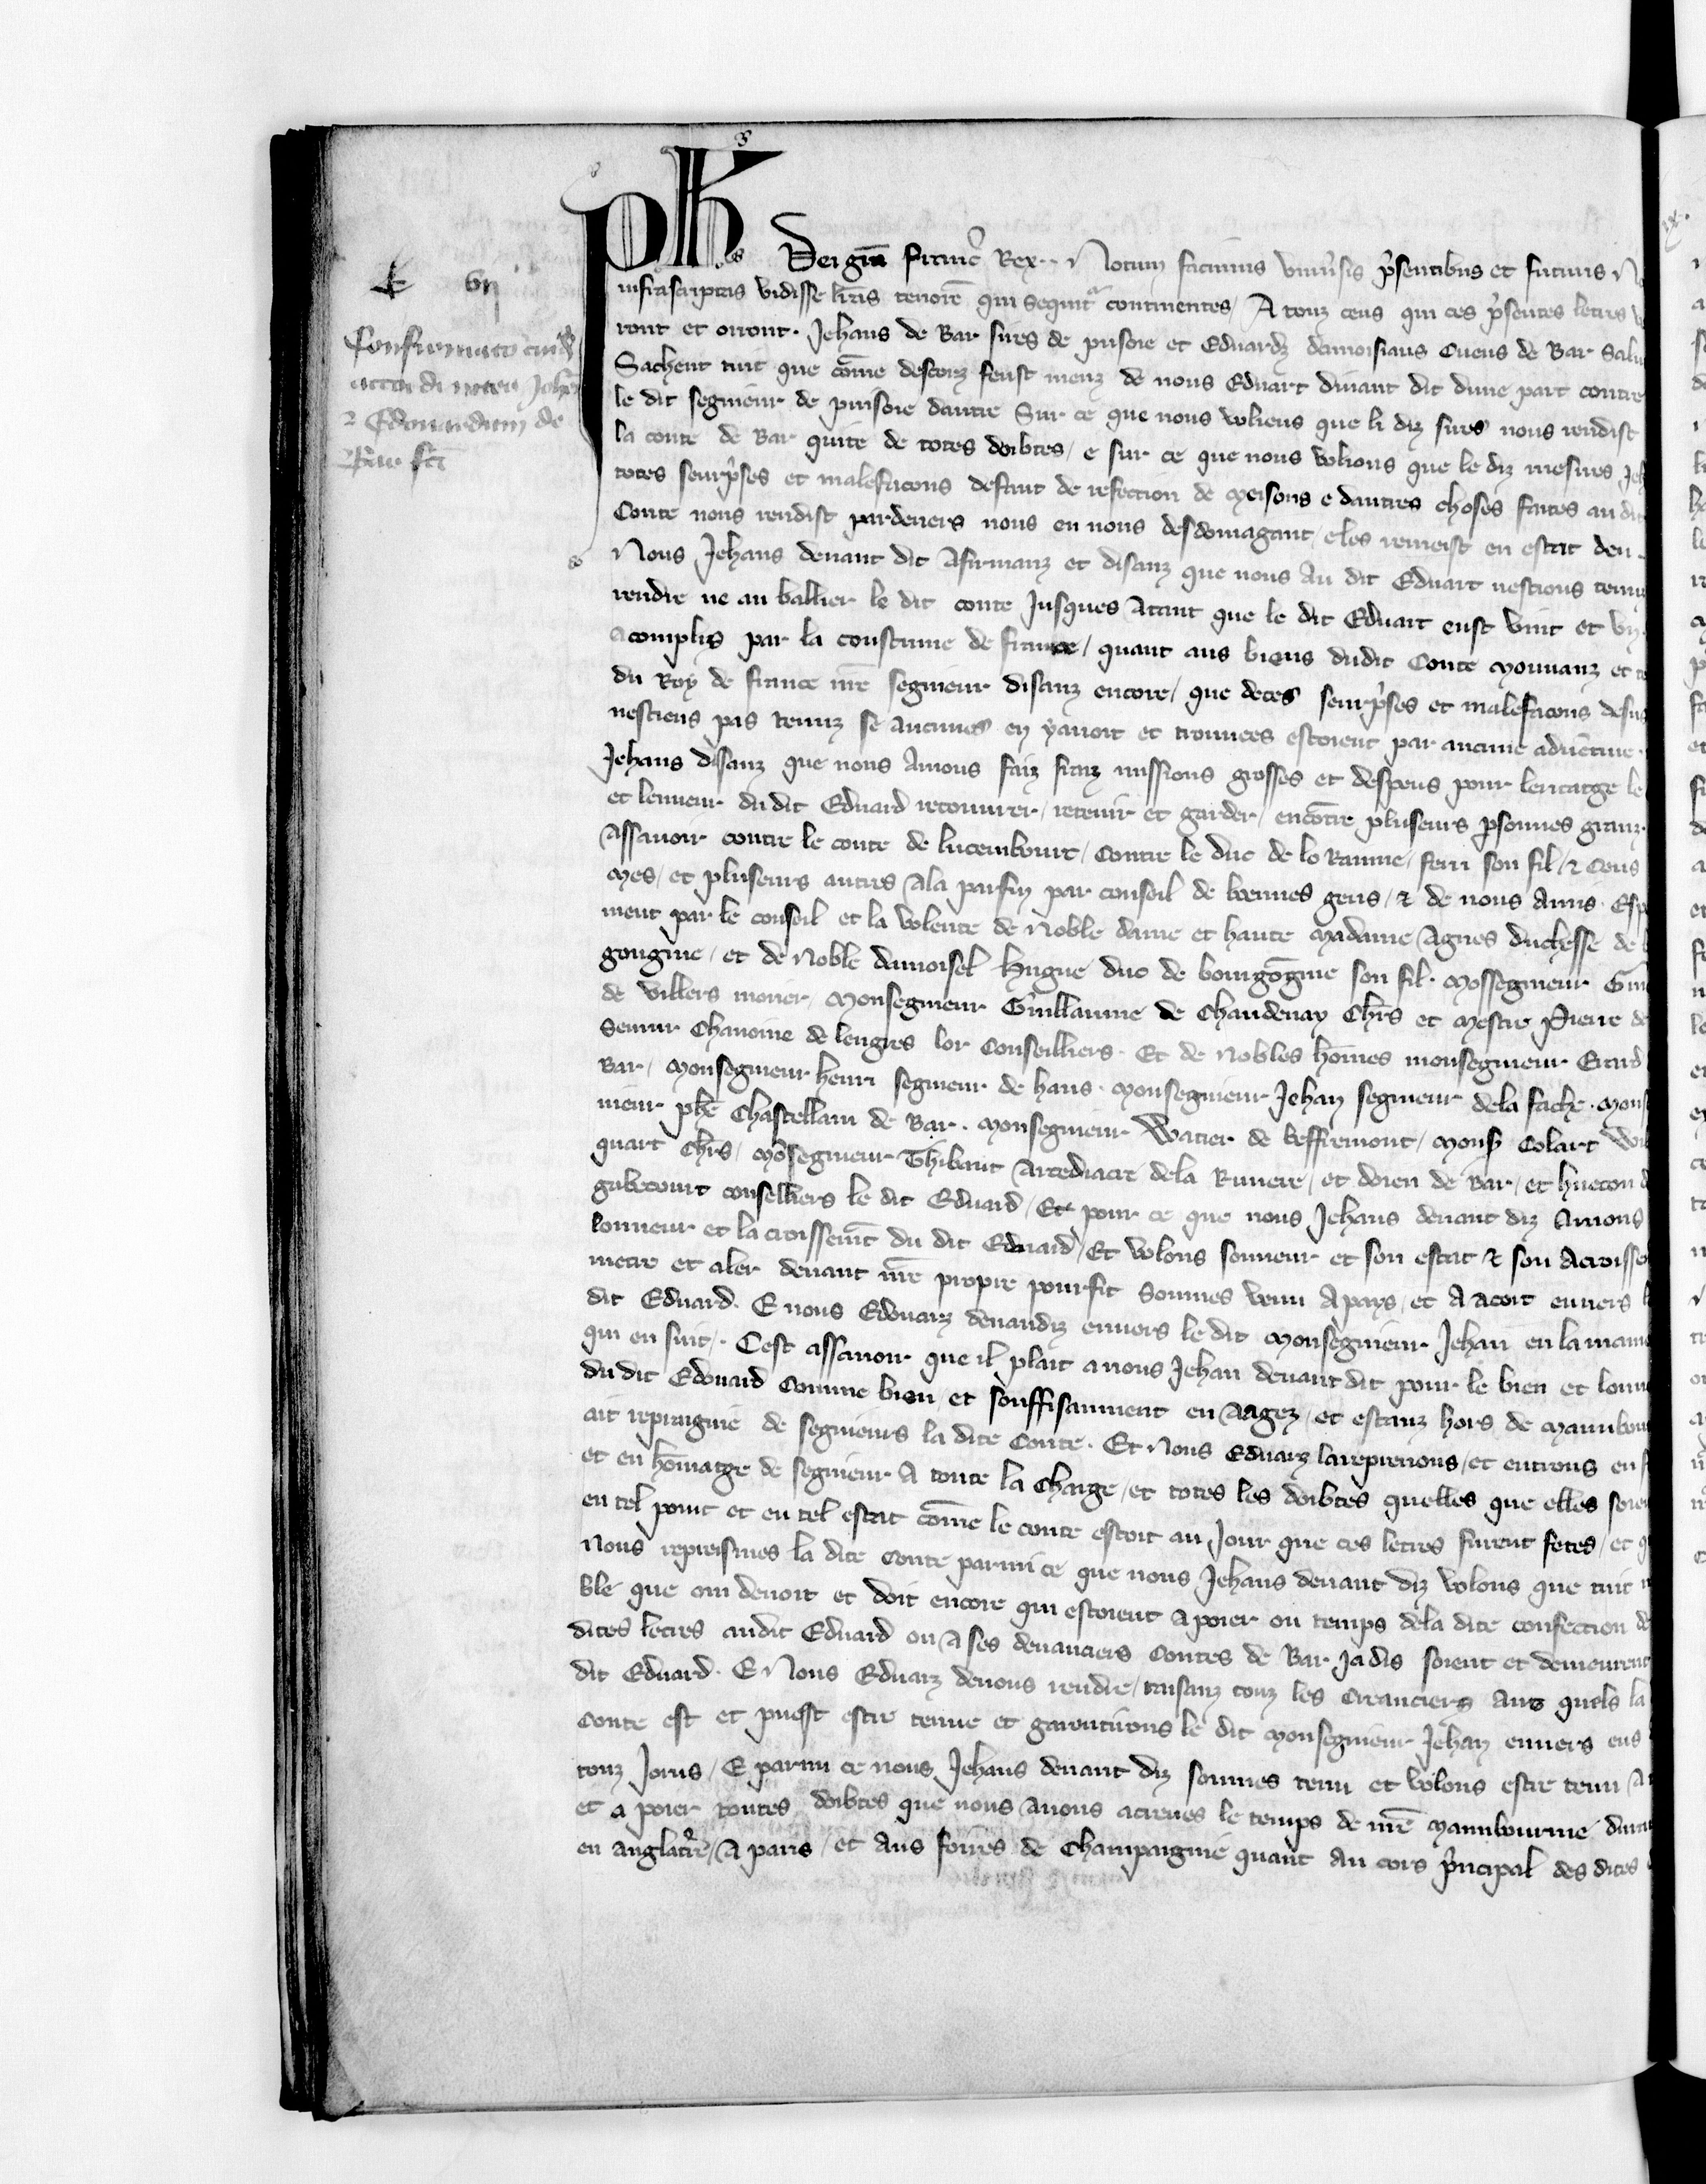 vij
Ph's Dei gr̄a Franc̄ Rex. Notum facimus univ̾sis p̾sentibus et futuris
infrascriptas vidisse lr̄as tenorē qui sequit᷑ continentes, A touz ceus qui ces p̾sentes letres
ront et orront. Jehans de Bar sires de puisoie et Eduardz damoisiaus Cuens de Bar Salu
Sachent tuit que cōme descorz feust meuz de nous Eduart divant dit dune part contre
le dit segnieur de puisoie dautre Sur ce que nous voliens que li diz sires nous rendist
la conte de Bar quite de totes doibtes, e sur ce que nous volions que le diz mesires Jeh
totes seurp̾ses et malefacons defaut de refection de meisons e dautres choses faites au dit
Conte nous rendist pardevers nous en nous desdomagant, e les remeist en estat deu.
Nous Jehans devant dit Afirmanz et disanz que nous Au dit Eduart nestions tenu
rendre ne au ballier le dit conte Jusques Atant que le dit Eduart eust vint et un
acomplis par la coustume de france, quant aus biens dudit Conte mouvanz et
du Roy de france nr̄e segnieur disanz encore, que deces seurp̾ses et malefacons desus
nestiens pas tenuz se aucunes en y avoit et trouvees estoient par aucune advēture.
Jehans disanz que nous Avons faiz fraiz missions grosses et despens pour leritatge le
et lenneur du dit Eduard recouvrer, retenir et garder, encōtre pluseurs p̱sonnes granz.
Assavoir contre le conte de lucembourc, Contre le duc de loRanne, ferri son fil, & Cens
Mes, et pluseurs autres A la parfin par conseil de boennes gens, & de nous Amis. Esp
ment par le conseil et la volente de Noble dame et haute Madame Agnes duchesse de
gougnie, et de Noble damoisel Hugue duc de bourgōgnie son fil. Mossegnieur
de villers , Monsegnieur Guillaume de Chaudenay Chr̄s et mestre Pierre de
Semur Chanoine de lengres lor Conseilliers. Et de nobles hōmes monsegnieur Erard
Bar, Monsegnieur henri segnieur de hans. Monsegnieur Jehan segnieur dela fache. Mons
nieur ph̄e Chastellain de Bar. Monsegnieur Watier de beffremont, Mons Colart
quart Chr̄s, Mōsegnieur Thibaut Arcediacre dela Riviere, et doien de Bar, et huecon
gubecourt conselliers le dit Eduard, Et pour ce que nous Jehans devant diz Amons
lonneur et lacroissemēt du dit Eduard, Et volons sonneur et son estat & son Acroisse
metre et aler devant nr̄e propre pourfit Sommes venu A pays, et A acort envers
dit Eduard. E nous Edouarz devandiz envers le dit Monsegnieur Jehan en la manie
qui en suit. Cest assavoir que il plait a nous Jehan devant dit pour le bien et lonn
du dit Edouard Comme bien, et souffisanment en Aagez, et estanz hors de Mainbour
ait repraignie de segnieurs la dite Conte. Et Nous Eduarz la reprenons, et entrons en
et en hōmatge de segnieur A toute la Charge, et totes les doibtes quelles que elles soie
en tel point et en tel estat cōme le conte estoit au Jour que ces letres furent fetes, et
Nous repreismes la dite Conte parmi ce que nous Jehans devant diz volons que tuit
ble que om devoit et doit encore qui estoient A poier ou temps dela dite confection de
dites letres audit Eduard ou A ses devanciers Contes de Bar Ja dis soient et demeurent
dit Eduard. E Nous Eduarz devons rendre, faisanz touz les Creanciers Aus quels la
Conte est et puest estre tenue et garentirons le dit Monsegnieur Jehan envers eus
touz Jours, E parmi ce nous Jehans devant diz sommes tenu et volons estre tenu A
et a poier toutes doibtes que nous avons acreues le temps de nr̄e mainbournie
en anglat̾re, A paris, et Aus foires de Champaignie quant Au cors p̾ncipal des dites